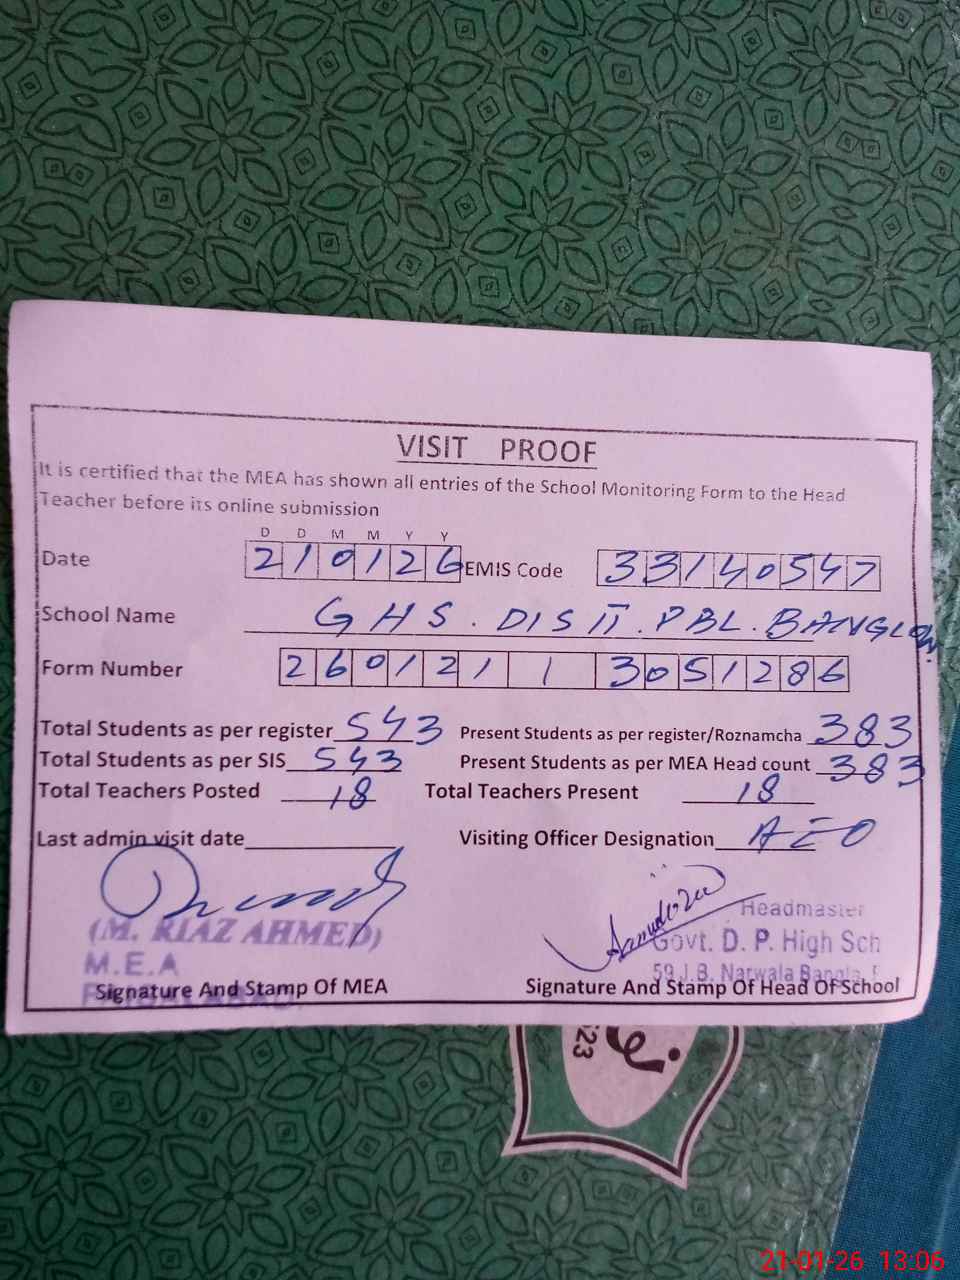 VISIT PROOF
It is certified that the MEA has shown all entries of the School Monitoring Form to the Head
Teacher before its online submission
D D M M Y Y
Date 210126 EMIS Code 33140547
School Name GHS. DISTT. PBL. BANGLOW.
Form Number 260121 1 3051286
Total Students as per register 543 Present Students as per register/Roznamcha 383
Total Students as per SIS 543 Present Students as per MEA Head count 383
Total Teachers Posted 18 Total Teachers Present 18
Last admin visit date Visiting Officer Designation AEO
(M. RIAZ AHMED) Headmaster
M.E.A Govt. D. P. High Sch
59 J.B. Natwala Bangla,
Signature And Stamp Of MEA Signature And Stamp Of Head Of School
23
21-01-26 13:06